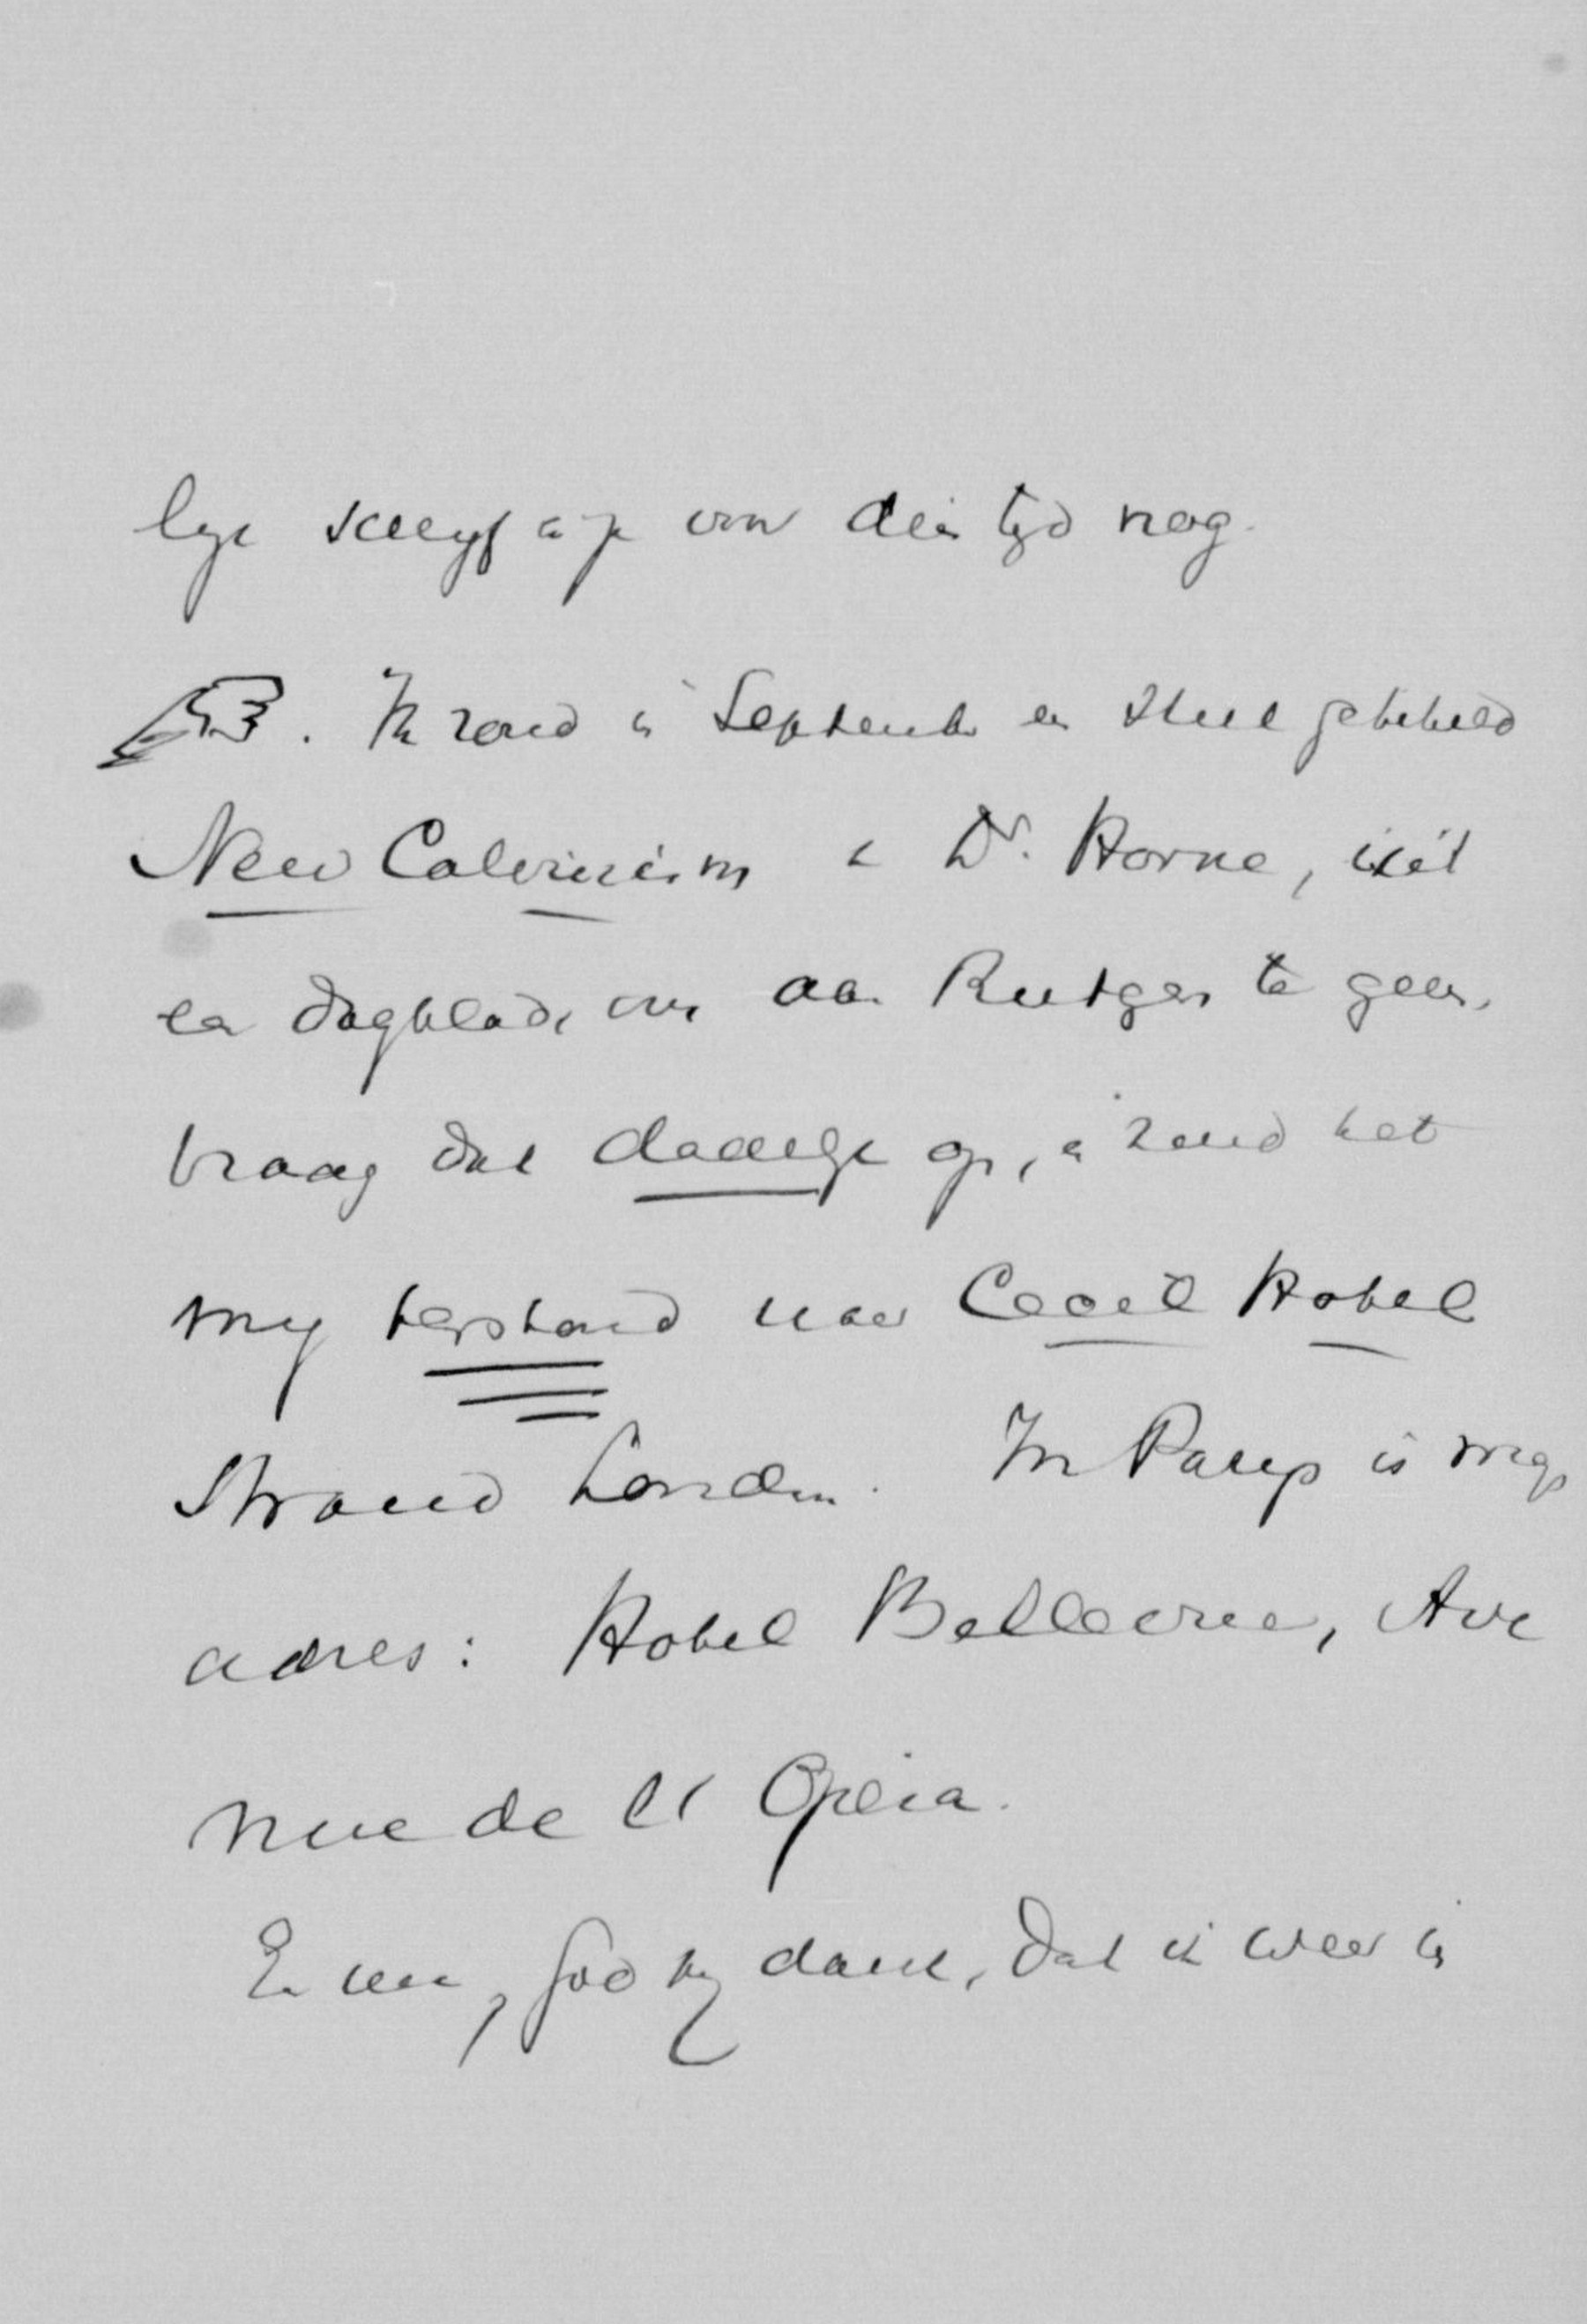 lyk schryf ik je voor dien tyd nog.
Ik zond in September een stuk getiteld
New Calvinism v. Dr. Horne, uit
een dagblad, om aan Rutgers te geven.
Vraag dat dadelijk op, en zend het
my terstond naar Cecil Hotel
Strand London. In Parys is myn
adres: Hotel Bellevue, Ave
nue de l'Opéra.
En nu, God zy dank, dat ik weer in